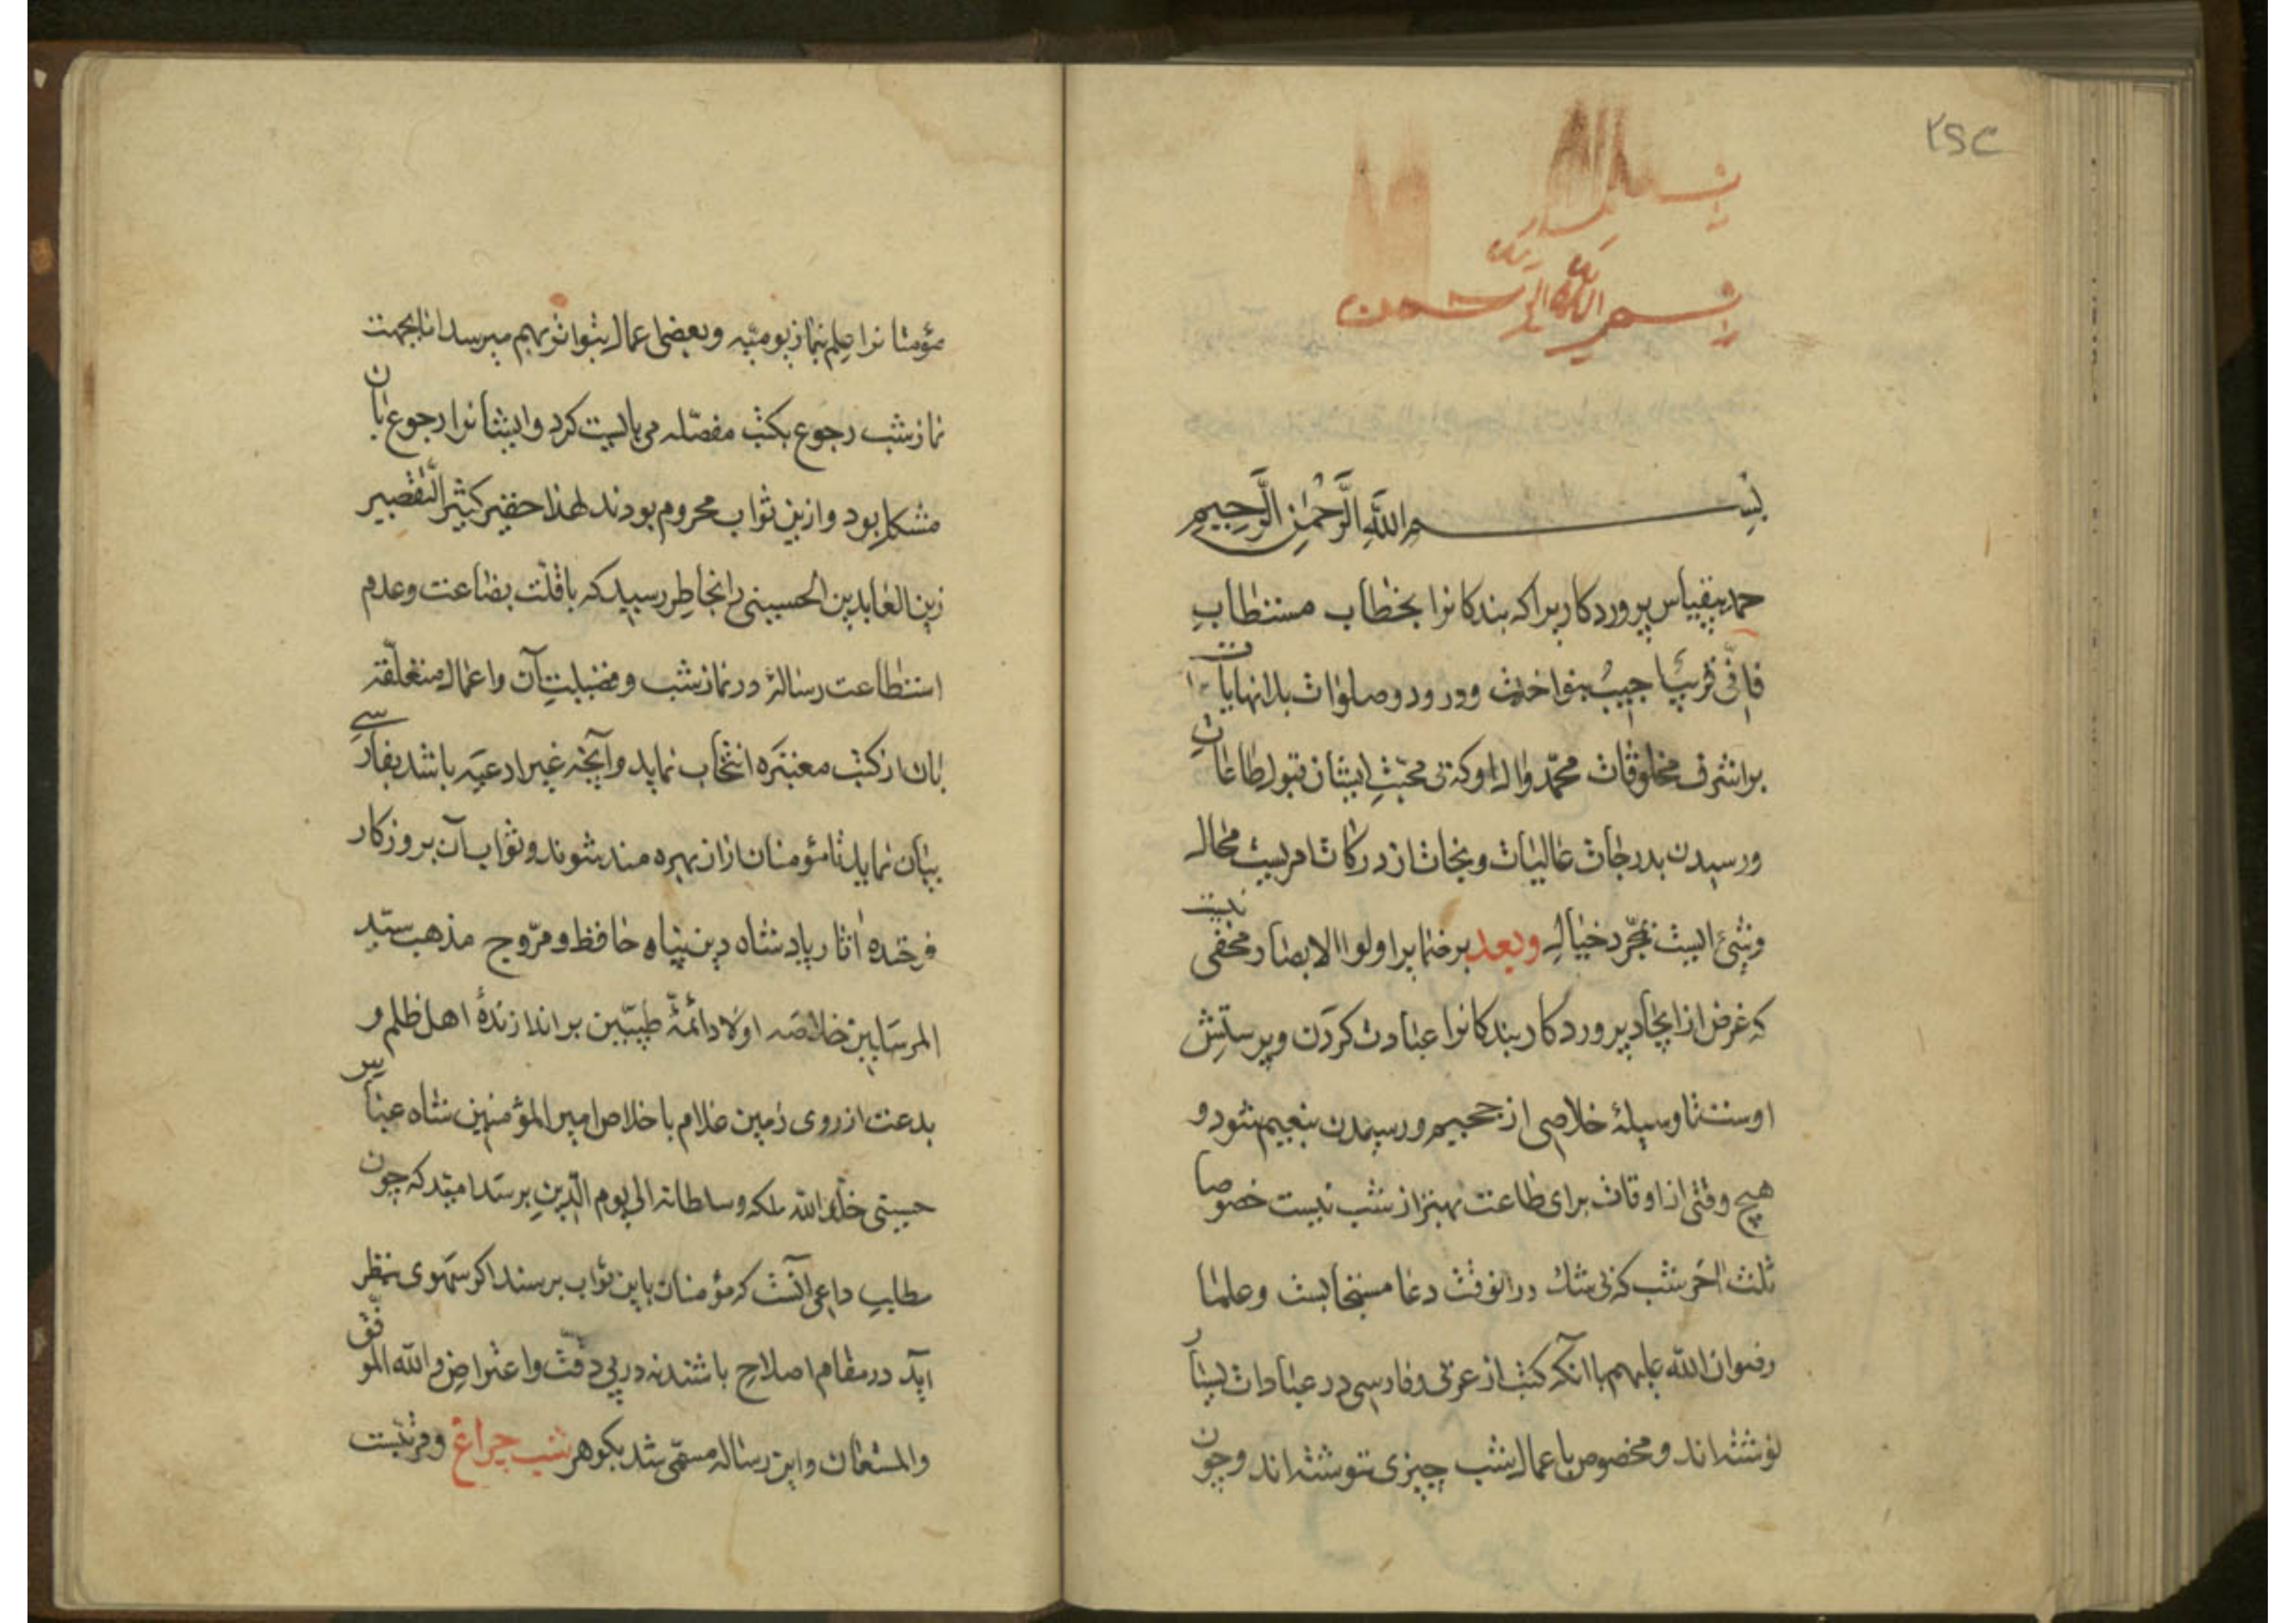 ۲۶۳
بسم الله الرحمن
بسم الله الرحمن الرحیم
حمد بیقیاس پروردکاریرا که بندکانرا بخطاب مستطاب
فانی قریب اجیب بنواخت ودرود وصلوات بلانهایات
بر اشرف مخلوقات محمّد وال او که بی محبّت ایشان قبول طاعات
ورسیدن بدرجات عالیات ونجات از درکات امریست محال
وشیء ایست بمجرّد خیال وبعد بر ضمایر اولوا الابصار مخفی نیست
که غرض از ایجاد پروردکار بندکانرا عبادت کردن وپرستش
اوست تا وسیلهٔ خلاصی از جحیم ورسیدن بنعیم شود و
هیچ وقتی از اوقات برای طاعت بهتر از شب نیست خصوصا
ثلث اخر شب که بی شك درانوقت دعا مستجابست وعلما
رضوان الله علیهم باآنکه کتب از عربی وفارسی در عبادات بسیار
نوشته اند ومخصوص باعمال شب چیزی ننوشته اند وچون
مؤمنانرا علم بنماز یومیّه وبعضی اعمال بتواتر بهم میرسد اما بجهت
نماز شب رجوع بکتب مفصّله می بایست کرد وایشانرا رجوع بان
مشکل بود وازین ثواب محروم بودند لهذا حقیر کثیر التّقصیر
زین العابدین الحسینی را بخاطر رسید که باقلّت بضاعت وعدم
استطاعت رسالۀ در نماز شب وفضیلت آن واعمال متعلّقه
بان از کتب معتبره انتخاب نماید وآنچه غیر ادعیه باشد بفارسی
بیان نماید تا مؤمنان ازان بهره مند شوند وثواب آن بروزکار
فرخنده اثار پادشاه دین پناه حافظ ومروّج مذهب سیّد
المرسلین خلاصه اولاد ائمّهٔ طیّبین براندازندهٔ اهل ظلم و
بدعت از روی زمین غلام باخلاص امیر المؤمنین شاه عباس
حسینی خلّد الله ملکه وسلطانه الی یوم الدّین برسد امید که چون
مطلب داعی آنست که مؤمنان باین ثواب برسند اکر سهوی بنظر
آید در مقام اصلاح باشند نه در پی دقّت واعتراض والله الموفّق
والمستعان واین رساله مسمّی شد بکوهر شب چراغ ومرتبست